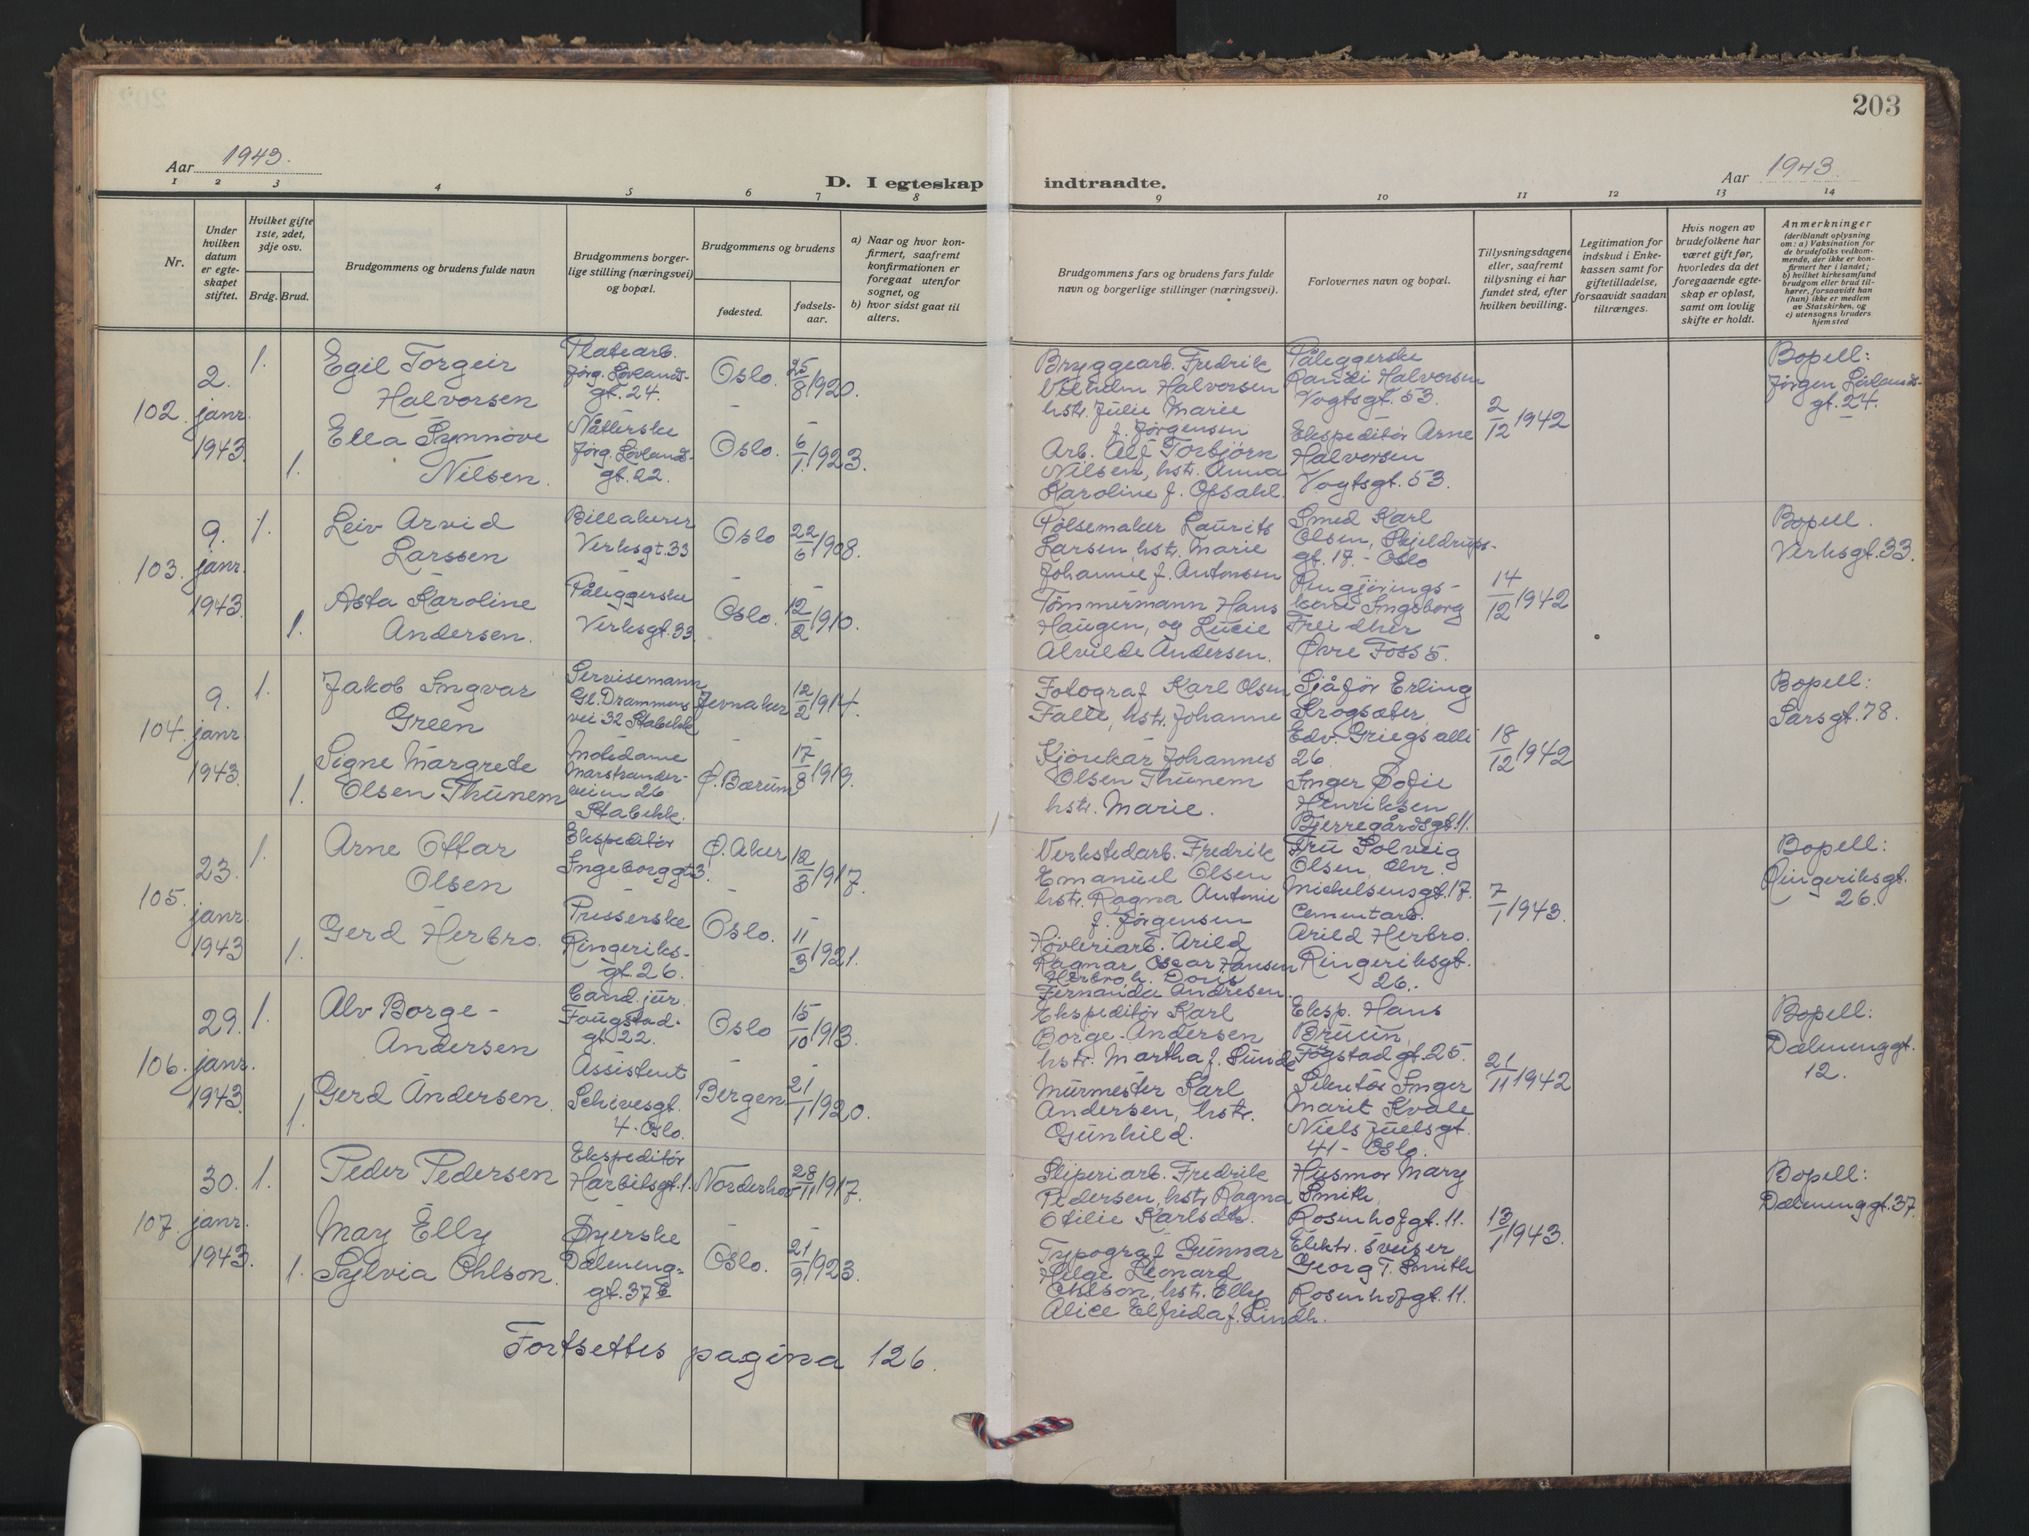 203
Aar 1943.
D. I egteskap indtraadte.
Aar 1943.
1 2 3 4 5 6 7 8 9 10 11 12 13 14
Nr.
Under
hvilken
datum
er egte-
skapet
stiftet.
Hvilket gifte
1ste, 2det,
3dje osv.
Brdg. Brud.
Brudgommens og brudens fulde navn
Brudgommens borger-
lige stilling (næringsvei)
og bopæl.
Brudgommens og brudens
fødested.
fødsels-
aar.
a) Naar og hvor kon-
firmert, saafremt
konfirmationen er
foregaat utenfor
sognet, og
b) hvor sidst gaat til
alters.
Brudgommens fars og brudens fars fulde
navn og borgerlige stillinger (næringsvei).
Forlovernes navn og bopæl.
Tillysningsdagene
eller, saafremt
tillysning ei har
fundet sted, efter
hvilken bevilling.
Legitimation for
indskud i Enke-
kassen samt for
giftetilladelse,
forsaavidt saadan
tiltrænges.
Hvis nogen av
brudefolkene har
været gift før,
hvorledes da det
foregaaende egte-
skap er opløst,
samt om lovlig
skifte er holdt.
Anmerkninger
(deriblandt oplysning
om: a) Vaksination for
de brudefolks vedkom-
mende, der ikke er kon-
firmert her i landet;
b) hvilket kirkesamfund
brudgom eller brud til-
hører, forsaavidt han
(hun) ikke er medlem
av Statskirken, og
c) utensogns bruders
hjemsted
102.
2.
janr.
1943.
1.
1.
Egil Torgeir
Halvorsen
Ella Synnøve
Nilsen.
Platearb.
Jørg. Løvlands-
gt. 24.
Nåtlerske
Jørg. Løvlands-
gt. 22.
Oslo.
Oslo.
25/8 1920.
6/1 1923.
Bryggearb. Fredrik
Vilhelm Halvorsen
hstr. Julie Marie
f. Jørgensen
Arb. Alf Torbjørn
Nilsen, hstr. Anna
Karoline f. Opsahl.
Påleggerske
Randi Halvorsen
Vogtsgt. 53.
Ekspeditør Arne
Halvorsen
Vogtsgt. 53.
2/12 1942
Bopell:
Jørgen Løvlands-
gt. 24.
103.
9.
janr.
1943.
1.
1.
Leiv Arvid
Larssen
Asta Karoline
Andersen.
Billakerer
Verksgt. 33
Påleggerske
Verksgt. 33
Oslo
Oslo.
22/6 1908.
12/2 1910.
Pølsemaker Laurits
Larsen hstr. Marie
Johannie f. Antonsen
Tømmermann Hans
Haugen, og Lucie
Alvilde Andersen.
Smed Karl
Olsen, Skjeldrups-
gt. 17. - Oslo
Rengjørings-
kone Ingeborg
Freidher
Øvre Foss 5.
14/12 1942
Bopell.
Verksgt. 33.
104.
9.
janr.
1943.
1.
1.
Jakob Ingvar
Green
Signe Margrete
Olsen Thunem
Servisemann
Gl. Drammens
vei 32 Stabekk
Motedame
Marstrander-
veien 26
Stabekk.
Jevnaker
Ø. Bærum
12/2 1914.
17/8 1919.
Fotograf Karl Olsen
Falle, hstr. Johanne
Kjørekar Johannes
Olsen Thunem
hstr. Marie.
Sjåfør Erling
Krogsæter
Edv. Griegs alle
26.
Inger Sofie
Henriksen
Bjerregårdsgt. 11.
18/12 1942
Bopell:
Sarsgt. 78.
105.
23.
janr.
1943
1.
1.
Arne Ottar
Olsen
Gerd Herbro.
Ekspeditør
Ingeborggt. 3.
Presserske
Ringeriks-
gt. 26.
Ø. Aker
Oslo.
12/3 1917.
11/3 1921.
Verkstedarb. Fredrik
Emanuel Olsen
hstr. Ragna Antonie
f. Jørgensen
Høvleriarb. Arild
Ragnar Oscar Hansen
Herbro, h. Doris
Fernanda Andresen.
Fru Solveig
Olsen, Chr.
Michelsensgt. 17.
Cementarb.
Arild Herbro.
Ringeriksgt.
26.
7/1 1943.
Bopell:
Ringeriksgt.
26.
106.
29.
janr.
1943.
1.
1.
Alv Borge-
Andersen
Gerd Andersen.
Cand. jur.
Fougstad-
gt. 22.
Assistent
Schivesgt.
4 - Oslo.
Oslo
Bergen
15/10 1913.
21/1 1920.
Ekspeditør Karl
Borge-Andersen
hstr. Martha f. Sunde
Murmester Karl
Andersen, hstr.
Gunhild.
Eksp. Hans
Bruun,
Fogstad gt. 25.
Sekretær Inger
Marit Kvale
Niels Juels gt.
41 - Oslo.
21/11 1942
Bopell:
Dælenenggt.
12.
107.
30.
janr.
1943.
1.
1.
Peder Pedersen
May Elly
Sylvia Ohlson.
Ekspeditør
Harbitsgt. 1.
Syerske
Dæleneng-
gt. 37
Norderhov
Oslo.
28/11 1917.
21/9 1923.
Sliperiarb. Fredrik
Pedersen, hstr. Ragna
Otilie Karlsdtr.
Typograf Gunnar
Helge Leonard
Ohlson, hstr. Elly
Alice Elfrida f. Lindh.
Husmor Mary
Smith,
Rosenhofgt. 11.
Elektr. sveiser
Georg T. Smith
Rosenhofgt. 11.
13/1 1943.
Bopell:
Dælenenggt. 37.
Fortsettes pagina 126.